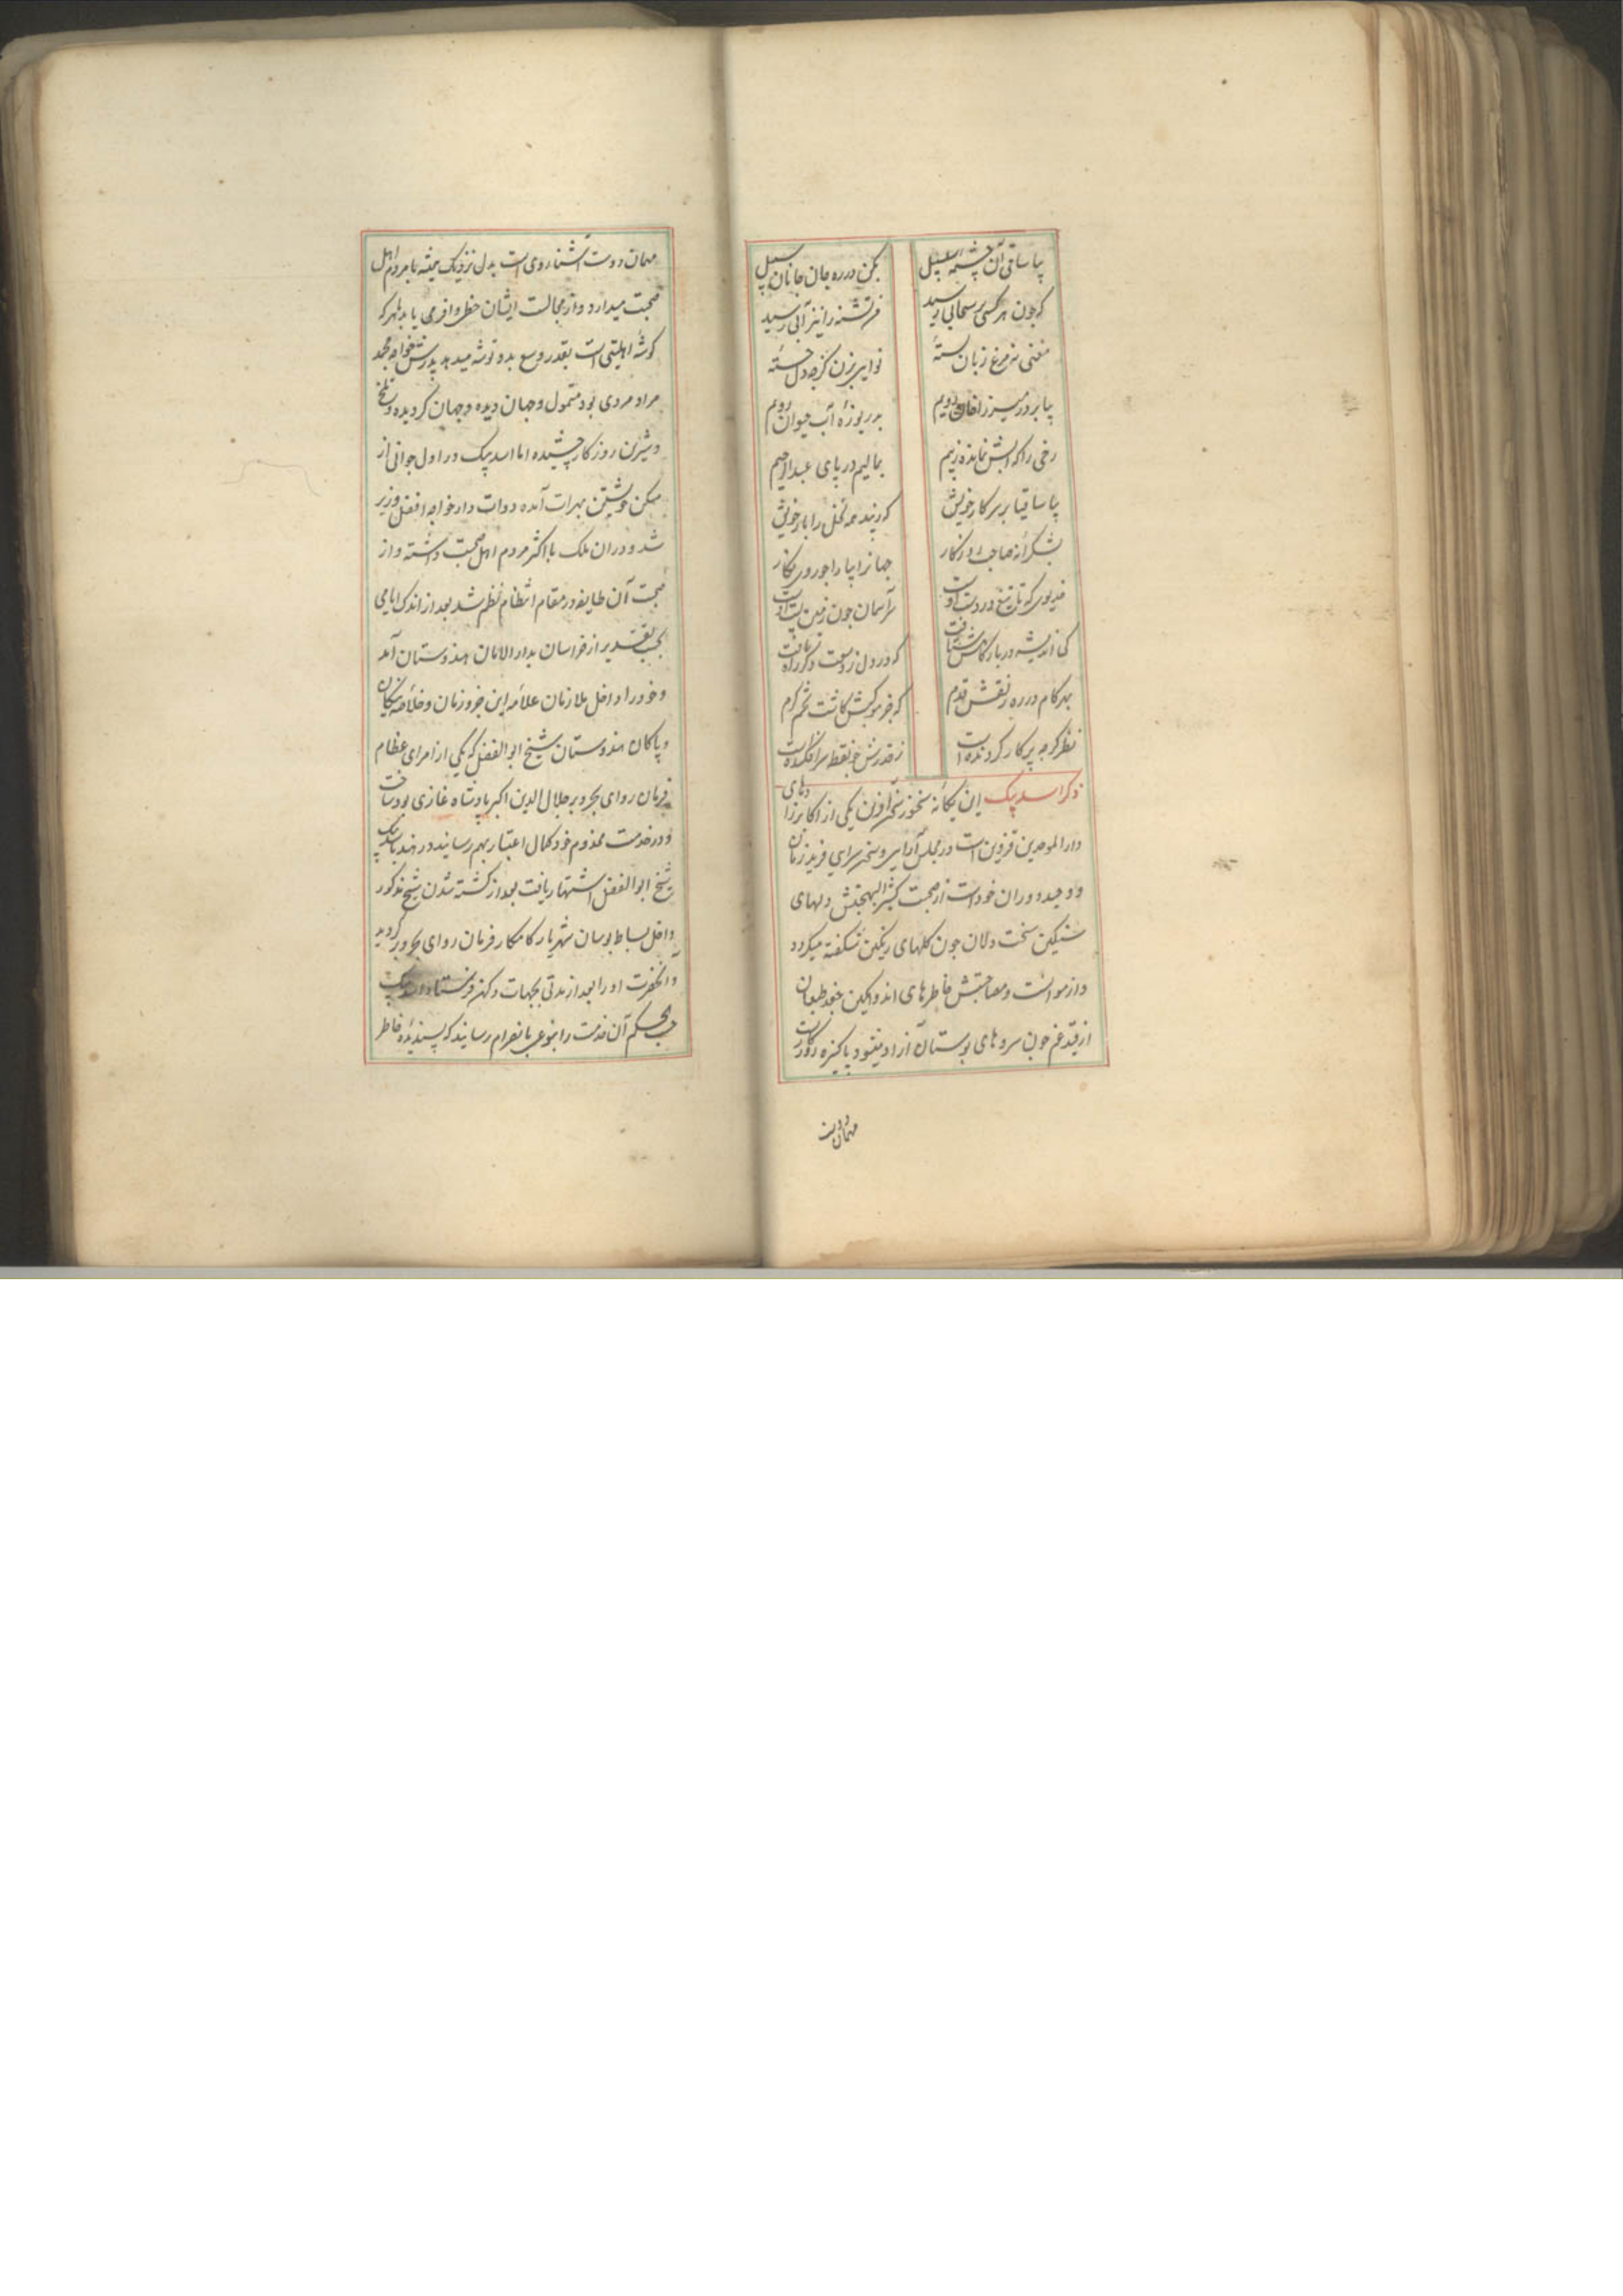 بیا ساقی آن چشمه سلسبیل بکن در ره جان جانان سبیل
که چون هر کسی بر سحابی رسید من تشنه را نیز آبی رسید
مغنی نه مرغ زبان بستهٔ نوایی بزن گر چه دل خستهٔ
بیا بر در میرزا خان رویم بدریوزهٔ آب حیوان رویم
رخی را که آبش نمانده ز بیم بمالیم در پای عبدالرحیم
بیا ساقیا بر سر کار خویش که بینند همه نخل را بار خویش
بشکرانه صاحب روزکار جهانرا بیارا چو روی نکار
خدیوی که تا تیغ در دست اوست سر آسمان چون زمین پست اوست
کی اندیشه در بارکاهش شتافت که در دل ز وسعت دکر راه نیافت
بهر کام در ره ز نقش قدم که خرمن کش کاشت تخم کرم
نظر کر چه پرکار کردنده است ز قدرش چو نقطه سرافکنده است
ذکر اسد بیک این یکانه سخنور سخن آفرین یکی از اکابرزادهای
دار الموحدین قزوین است در مجلس آرایی و سخن سرایی فرید زمان
و وحید دوران خود است از صحبت کثیر البهجتش دلهای
سنکین سخت دلان چون کلهای رنکین شکفته میکردد
و از موانست و مصاحبتش خاطرهای اندوهکین جغد طبعان
از قید غم چون سروهای بوستان آزاد میشود پاکیزه روزکارست
مهمان دوست
مهمان دوست آشنا روی است بدل نزدیک همیشه با مردم اهل
صحبت میدارد و از مجالست ایشان حظ وافر می یابد بهر که
کوشهٔ اهلیتی است بقدر وسع بدو توشه میدهد پدرش خواجه محمد
مراد مردی بود متمول و جهان دیده و جهان کردیده و تلخ
و شیرین روزکار چشیده اما اسد بیک در اول جوانی از
مسکن خویشتن بهرات آمده دوات دار خواجه افضل وزیر
شد و در آن ملک با اکثر مردم اهل صحبت داشته و از
صحبت آن طایفه در مقام انتظام نظم شد بعد از اندک ایامی
بحسب تقدیر از خراسان بدار الامان هندوستان آمد
و خود را داخل ملازمان علامه این جزو زمان و خلاصه نیکان
و پاکان هندوستان شیخ ابو الفضل که یکی از امرای عظام
فرمان روای بحر و بر جلال الدین اکبر پادشاه غازی بود ساخت
و در خدمت مخدوم خود کمال اعتبار بهم رسانید در هند باسد بیک
شیخ ابو الفضل اشتهار یافت بعد از کشته شدن شیخ مذکور
داخل بساط بوسان شهریار کامکار فرمان روای بحر و بر کردید
و آنحضرت او را بعد از مدتی بجهات دکن فرستاد اسد بیک
حسب الحکم آن خدمت را بنوعی بانصرام رسانید که پسندیدهٔ خاطر